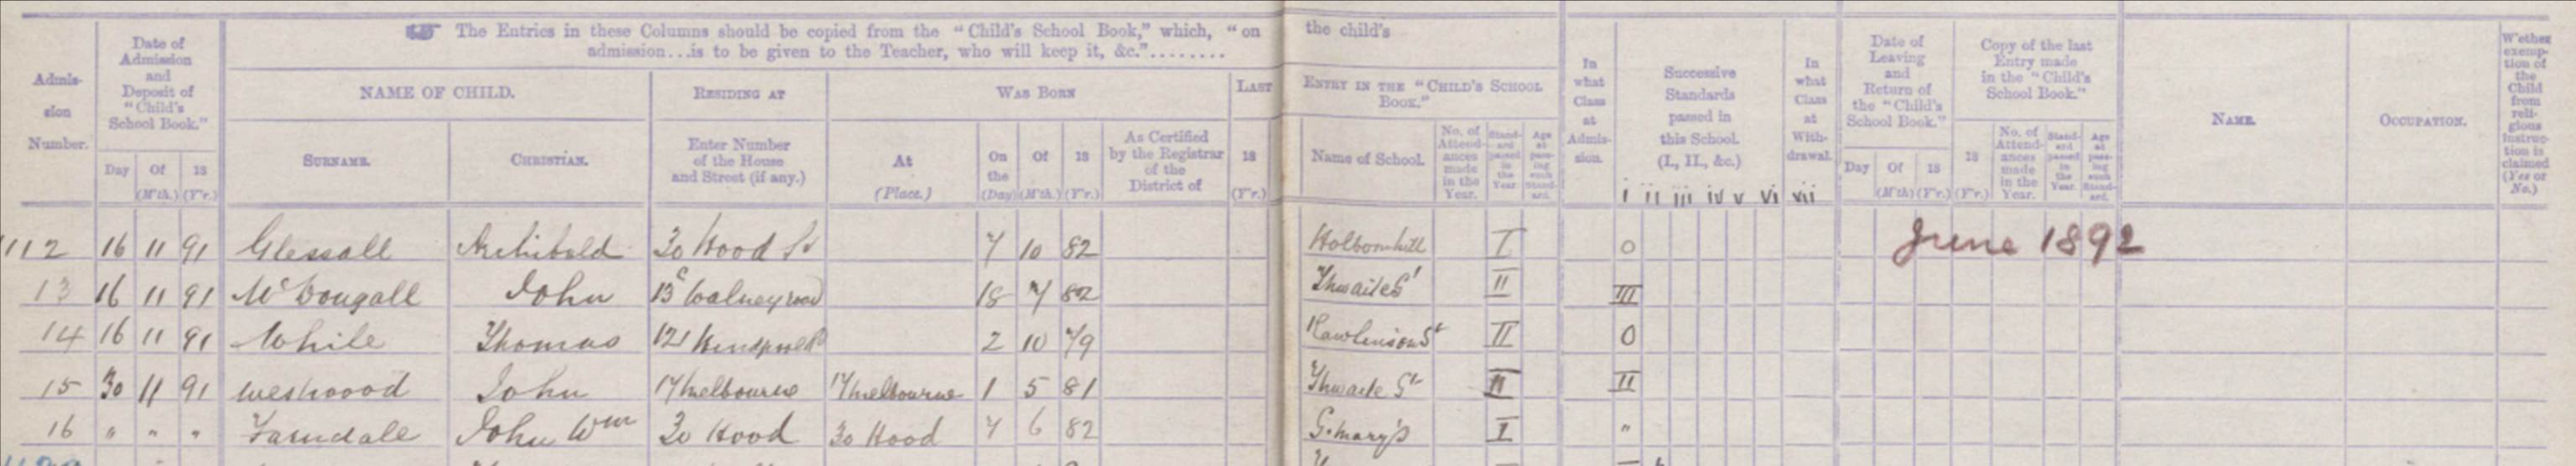 The Entries in these Columns should be copied from the "Child's School Book," which, "on the child's
admission...is to be given to the Teacher, who will keep it, &c."........
Admis-
sion
Number.
Date of
Admission
and
Deposit of
"Child's
School Book."
Day Of (M'th.) 18 (Y'r.)
NAME OF CHILD.
SURNAME. CHRISTIAN.
RESIDING AT
Enter Number
of the House
and Street (if any.)
WAS BORN
At
(Place.)
On
the
(Day)
Of
(M'th.)
18
(Y'r.)
As Certified
by the Registrar
of the
District of
LAST
18
(Y'r.)
ENTRY IN THE "CHILD'S SCHOOL
BOOK."
Name of School.
No. of
Attend-
ances
made
in the
Year.
Stand-
ard
passed
in
the
Year.
Age
at
pass-
ing
such
Stand-
ard.
In
what
Class
at
Admis-
sion.
Successive
Standards
passed in
this School.
(I., II., &c.)
i ii iii iv v vi vii
In
what
Class
at
With-
drawal.
Date of
Leaving
and
Return of
the "Child's
School Book."
Day Of (M'th) 18 (Y'r.)
Copy of the last
Entry made
in the "Child's
School Book."
18
(Y'r.)
No. of
Attend-
ances
made
in the
Year.
Stand-
ard
passed
in
the
Year.
Age
at
pass-
ing
such
Stand-
ard.
NAME.
OCCUPATION.
W'ether
exemp-
tion of
the
Child
from
reli-
gious
instruc-
tion is
claimed
(Yes or
No.)
1112 16 11 91 Glessall Archibald 30 Hood St 7 10 82 Holbornhill I 0 June 1892
13 16 11 91 McDougall John 18 7 82 Thwaite St II III
14 16 11 91 While Thomas 2 10 79 Rawlinson St II 0
15 30 11 91 Westwood John 17 Melbourne 17 Melbourne 1 5 81 Thwaite St II II
16 " " " Farndale John Wm 30 Hood 30 Hood 7 6 82 St. Mary's I "